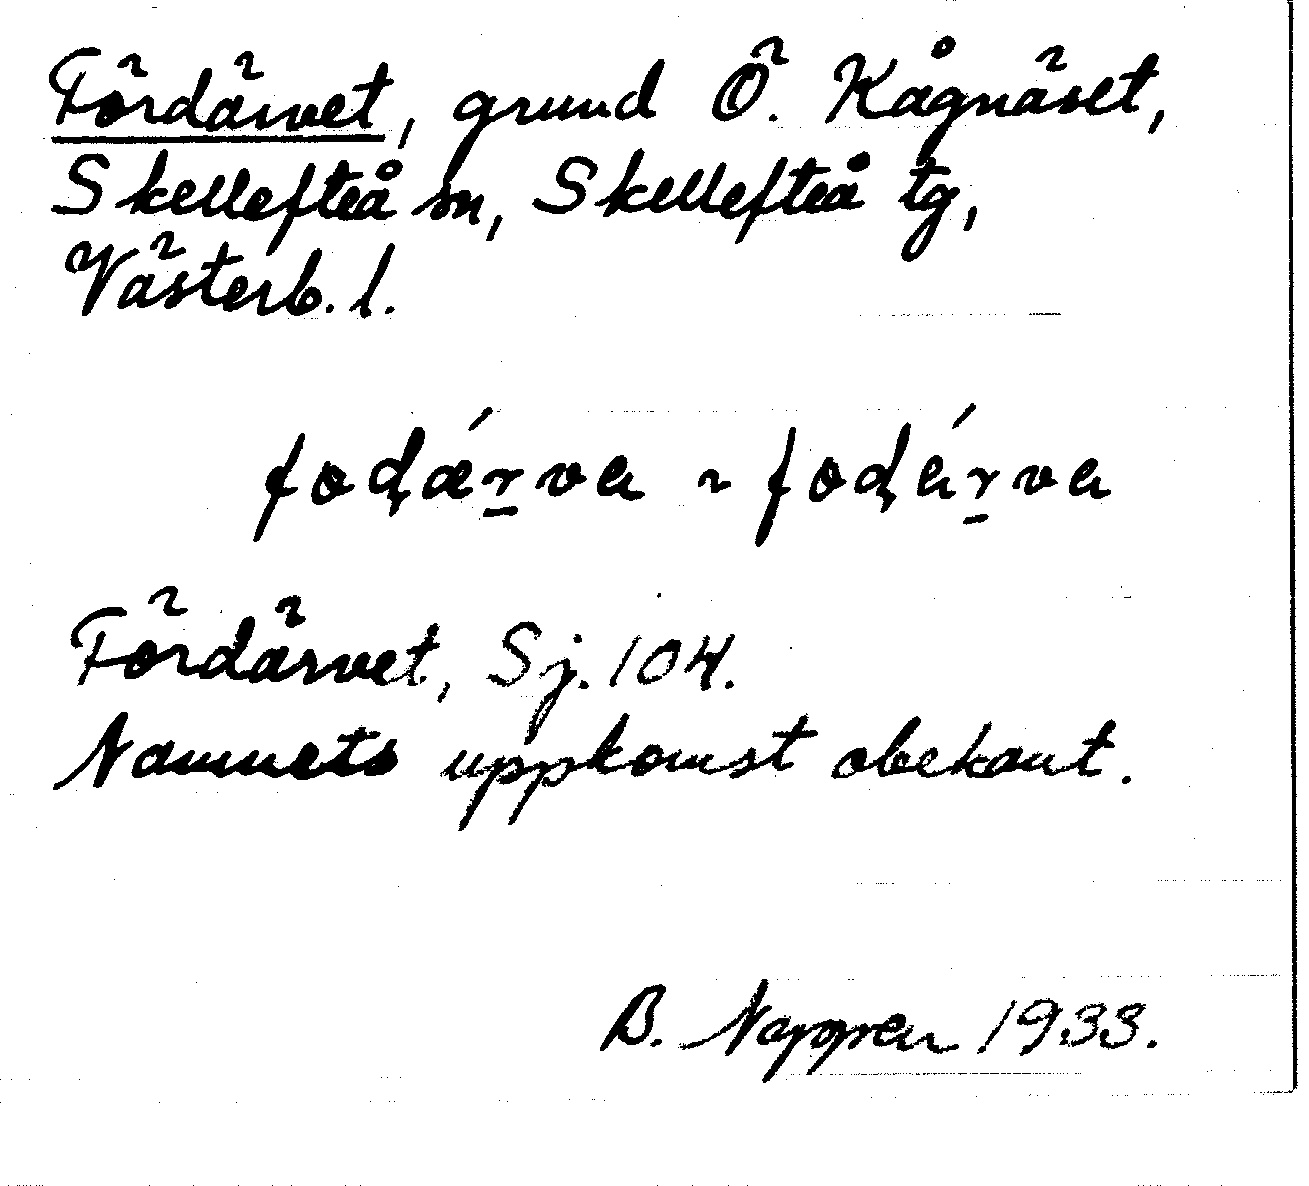 Fördärvet, grund Ö. Kågnäset,
Skellefteå sn, Skellefteå tg,
Västerb. l.
fodǽr̲va ~ fodár̲va
Fördärvet, Sj. 104.
Namnets uppkomst obekant.
B. 1933.